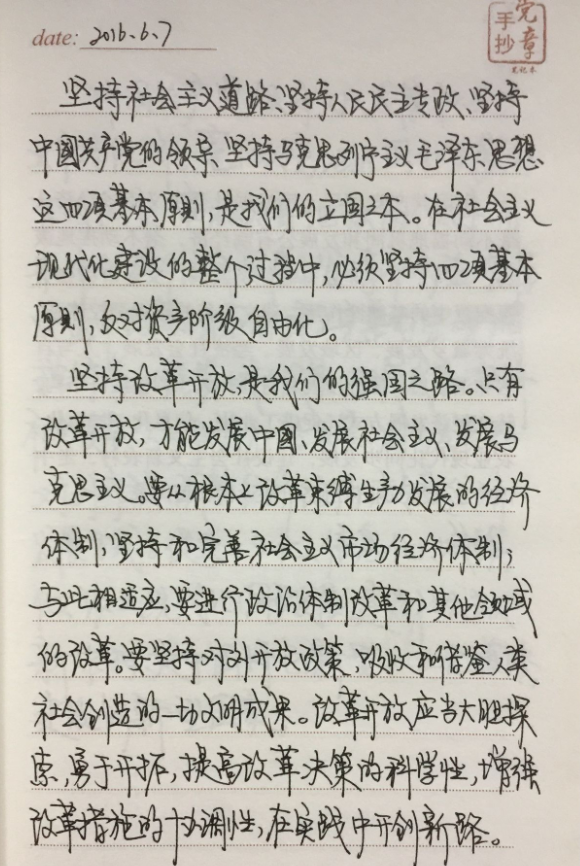 date: 2016.6.7
手抄党章
笔记本
坚持社会主义道路、坚持人民民主专政、坚持
中国共产党的领导、坚持马克思列宁主义毛泽东思想
这四项基本原则,是我们的立国之本。在社会主义
现代化建设的整个过程中,必须坚持四项基本
原则,反对资产阶级自由化。
坚持改革开放,是我们的强国之路。只有
改革开放,才能发展中国、发展社会主义、发展马
克思主义。要从根本上改革束缚生产力发展的经济
体制,坚持和完善社会主义市场经济体制;
与此相适应,要进行政治体制改革和其他领域
的改革。要坚持对外开放政策,吸收和借鉴人类
社会创造的一切文明成果。改革开放应当大胆探
索,勇于开拓,提高改革决策的科学性,增强
改革措施的协调性,在实践中开创新路。